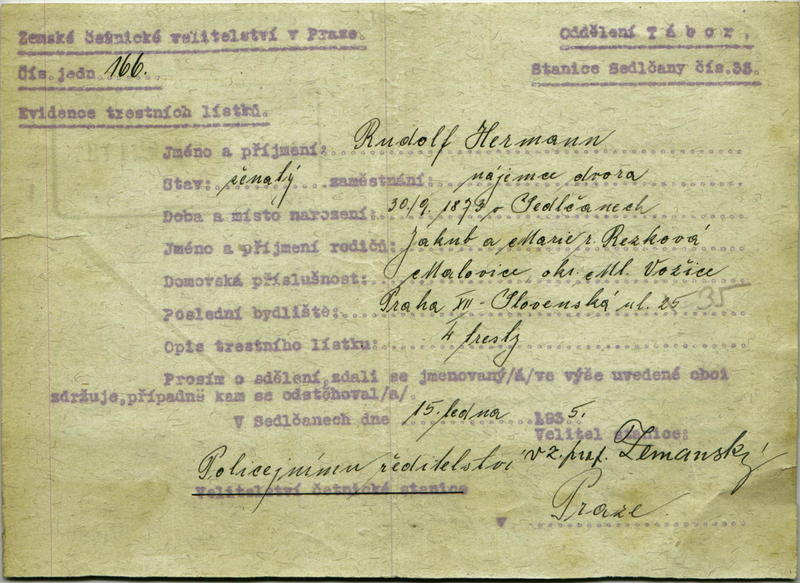 Zemské četnické velitelství v Praze.
Oddělení Tábor.
Čís. jedn. 166.
Stanice Sedlčany čís. 33.
Evidence trestních lístků.
Jméno a příjmení: Rudolf Hermann
Stav: ženatý zaměstnání: nájemce dvora
Doba a místo narození: 30/9. 1873 v Sedlčanech
Jméno a příjmení rodičů: Jakub a Marie r. Rezková
Domovská příslušnost: Malovice, okr. Ml. Vožice
Poslední bydliště: Praha XII - Slovenská ul. 25 35
Opis trestního lístku: 4 tresty
Prosím o sdělení, zdali se jmenovaný/á/ve výše uvedené obci
zdržuje, případně kam se odstěhoval/a/.
V Sedlčanech dne 15. ledna 1935.
Velitel stanice:
Policejnímu ředitelství v z. Zemanský
Velitelství četnické stanice
v Praze.